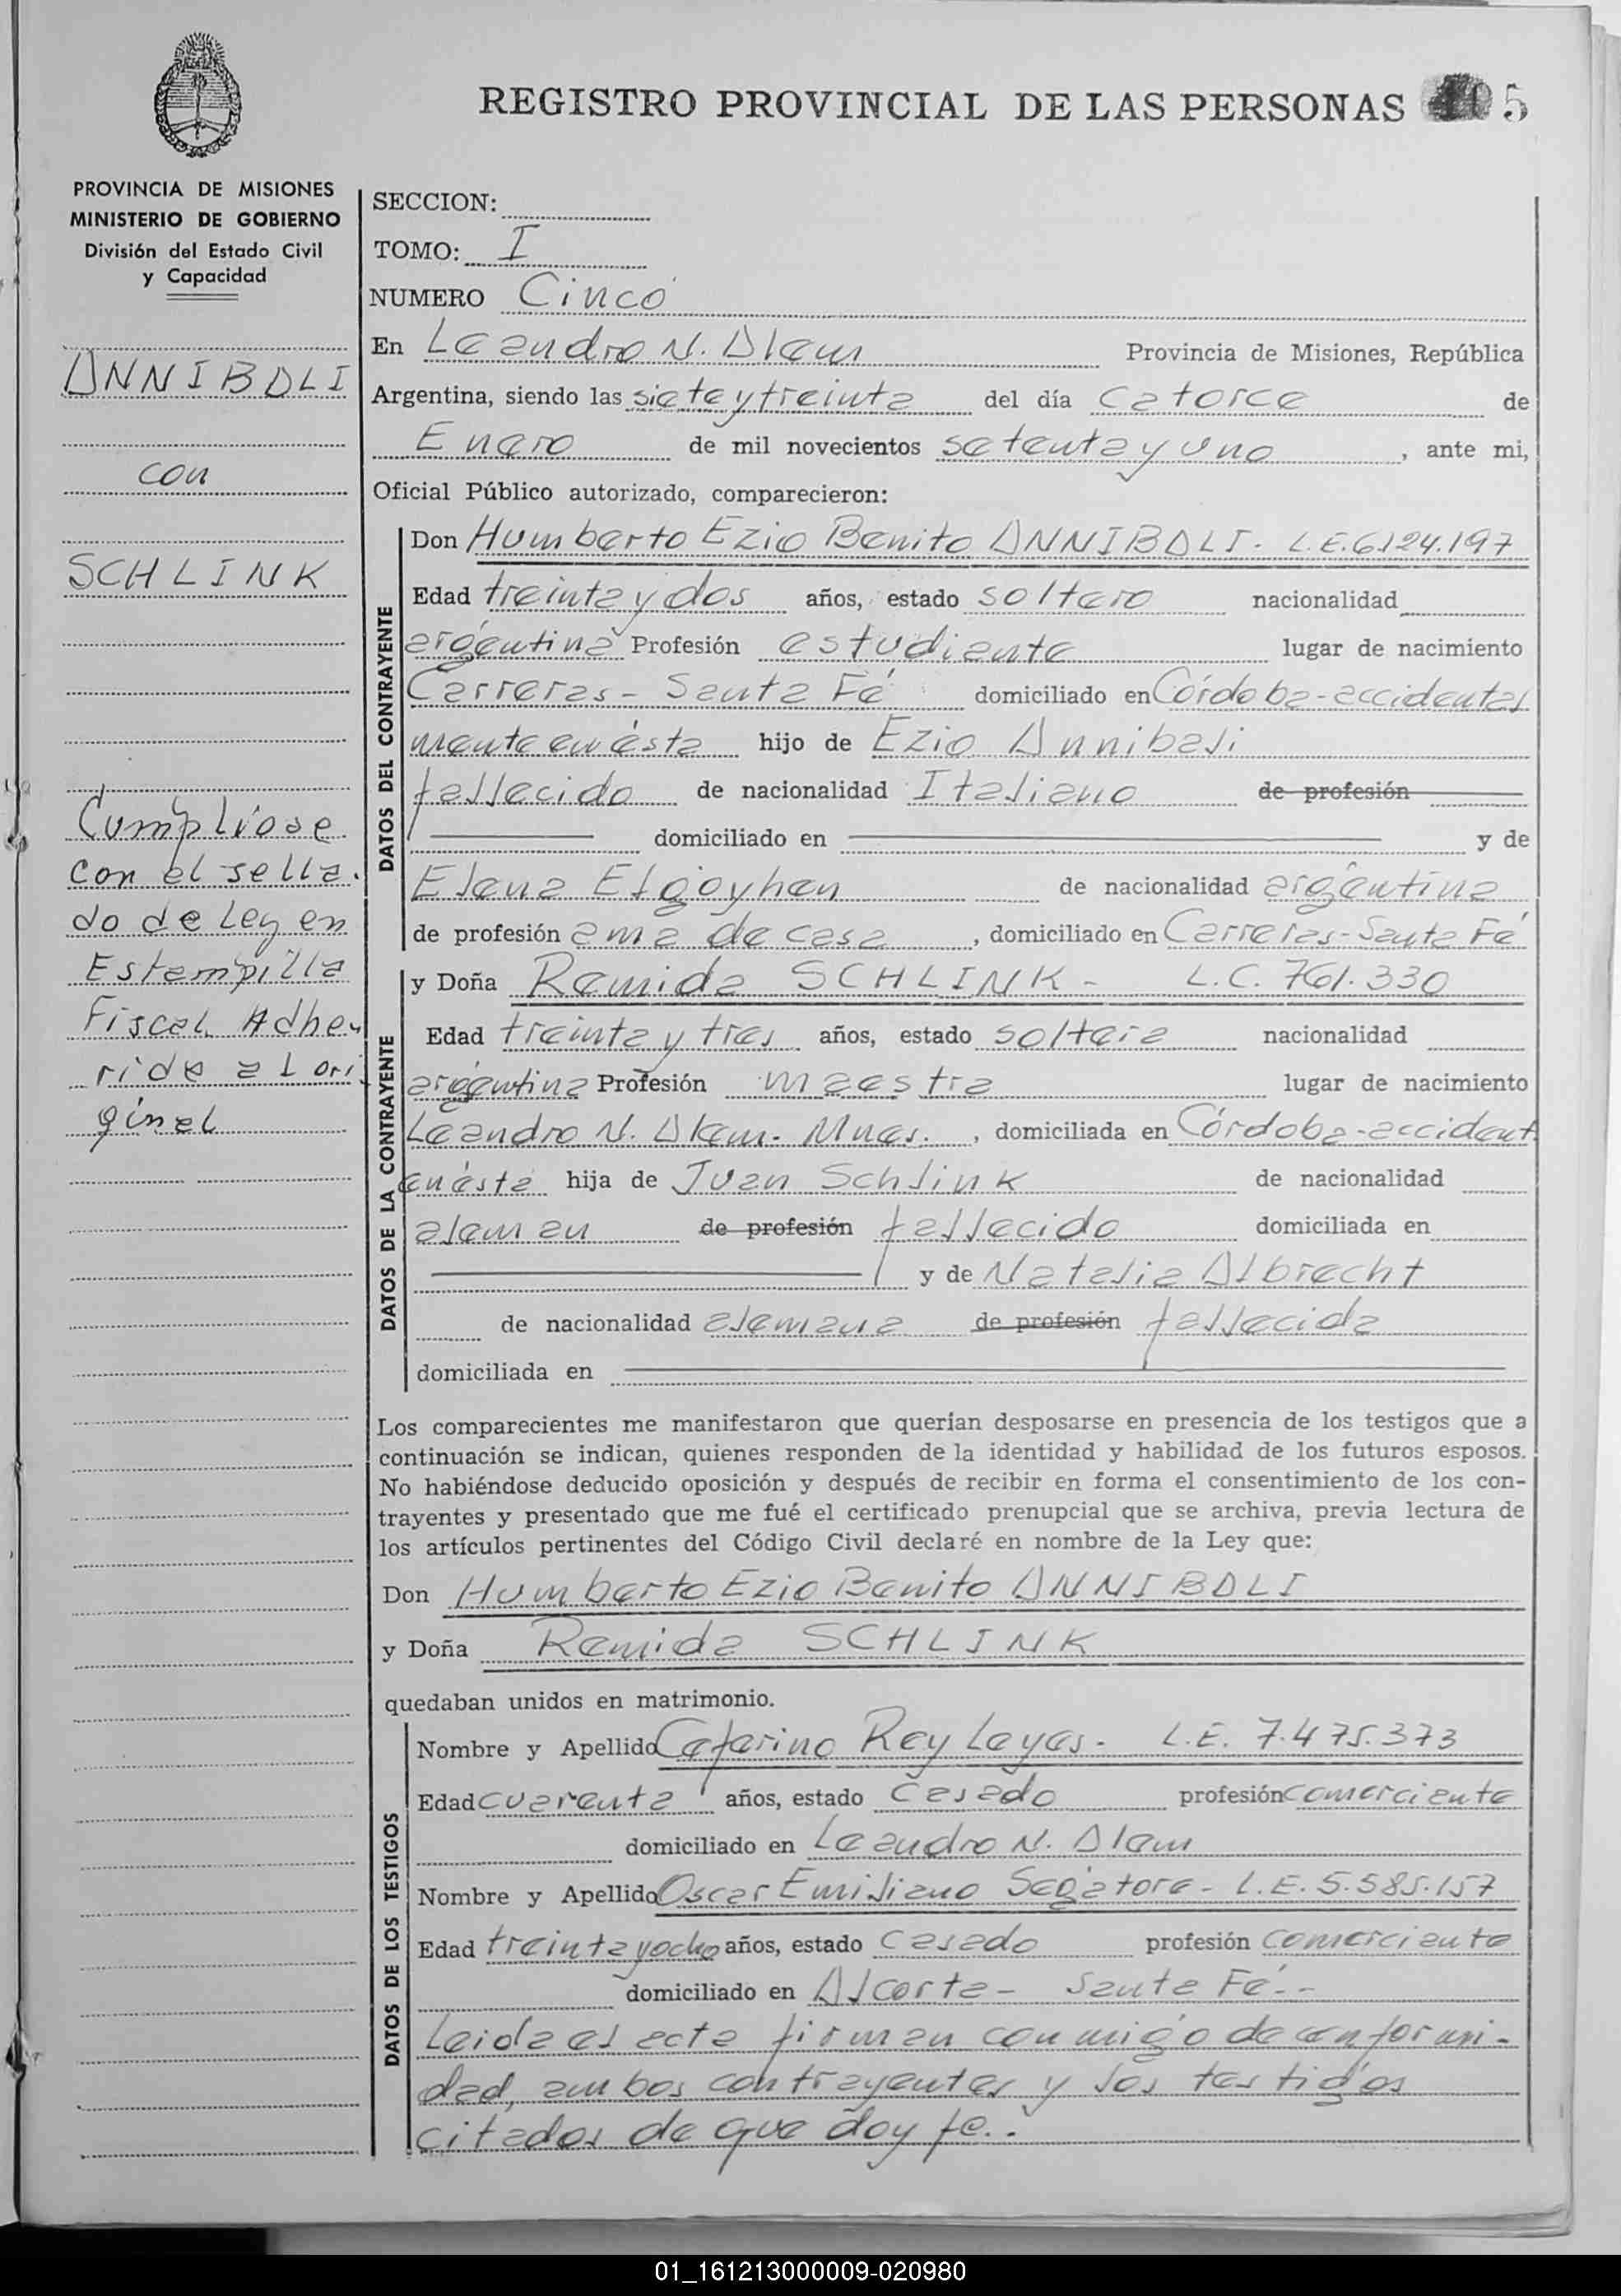 REGISTRO PROVINCIAL DE LAS PERSONAS 5
PROVINCIA DE MISIONES
MINISTERIO DE GOBIERNO
División del Estado Civil
y Capacidad
ANNIBALI
con
SCHLINK
Cumpliose
con el sella.
do de Ley en
Estampilla
Fiscal Adhe
rida al ori
ginal
SECCION:
TOMO: I
NUMERO Cinco
En Leandro N. Alem Provincia de Misiones, República
Argentina, siendo las siete y treinta del día catorce de
Enero de mil novecientos setenta y uno, ante mi,
Oficial Público autorizado, comparecieron:
DATOS DEL CONTRAYENTE
Don Humberto Ezio Benito ANNIBALI - L.E. 6.124.197
Edad treinta y dos años, estado soltero nacionalidad
argentina Profesión estudiante lugar de nacimiento
Carreras - Santa Fé domiciliado en Córdoba - accidental
mente en ésta hijo de Ezio Annibali
fallecido de nacionalidad Italiano de profesión
domiciliado en y de
Elena Elgoyhen de nacionalidad argentina
de profesión ama de casa, domiciliado en Carreras - Santa Fé
DATOS DE LA CONTRAYENTE
y Doña Remida SCHLINK - L.C. 761.330
Edad treinta y tres años, estado soltera nacionalidad
argentina Profesión maestra lugar de nacimiento
Leandro N. Alem. Mnes., domiciliada en Córdoba - accident.
en ésta hija de Juan Schlink de nacionalidad
aleman de profesión fallecido domiciliada en
y de Natalia Albrecht
de nacionalidad alemana de profesión fallecida
domiciliada en
Los comparecientes me manifestaron que querían desposarse en presencia de los testigos que a
continuación se indican, quienes responden de la identidad y habilidad de los futuros esposos.
No habiéndose deducido oposición y después de recibir en forma el consentimiento de los con-
trayentes y presentado que me fué el certificado prenupcial que se archiva, previa lectura de
los artículos pertinentes del Código Civil declaré en nombre de la Ley que:
Don Humberto Ezio Benito ANNIBALI
y Doña Remida SCHLINK
quedaban unidos en matrimonio.
DATOS DE LOS TESTIGOS
Nombre y Apellido Ceferino Rey Leyes - L.E. 7.475.373
Edad cuarenta años, estado casado profesión comerciante
domiciliado en Leandro N. Alem
Nombre y Apellido Oscar Emiliano Segatore - L.E. 5.585.157
Edad treinta y ocho años, estado casado profesión comerciante
domiciliado en Alcorta - Santa Fé.-
Leida el acta firman conmigo de conformi-
dad, ambos contrayentes y los testigos
citados de que doy fe.-
01_161213000009-020980